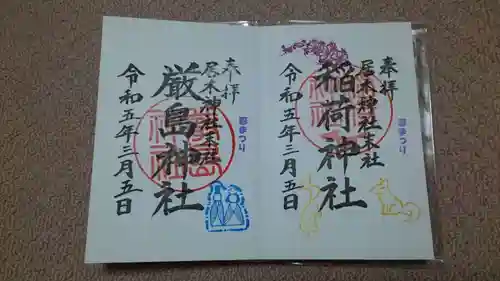 奉拝
居木神社末社
稲荷神社
令和五年三月五日
春まつり
奉拝
居木神社末社
厳島神社
令和五年三月五日
春まつり